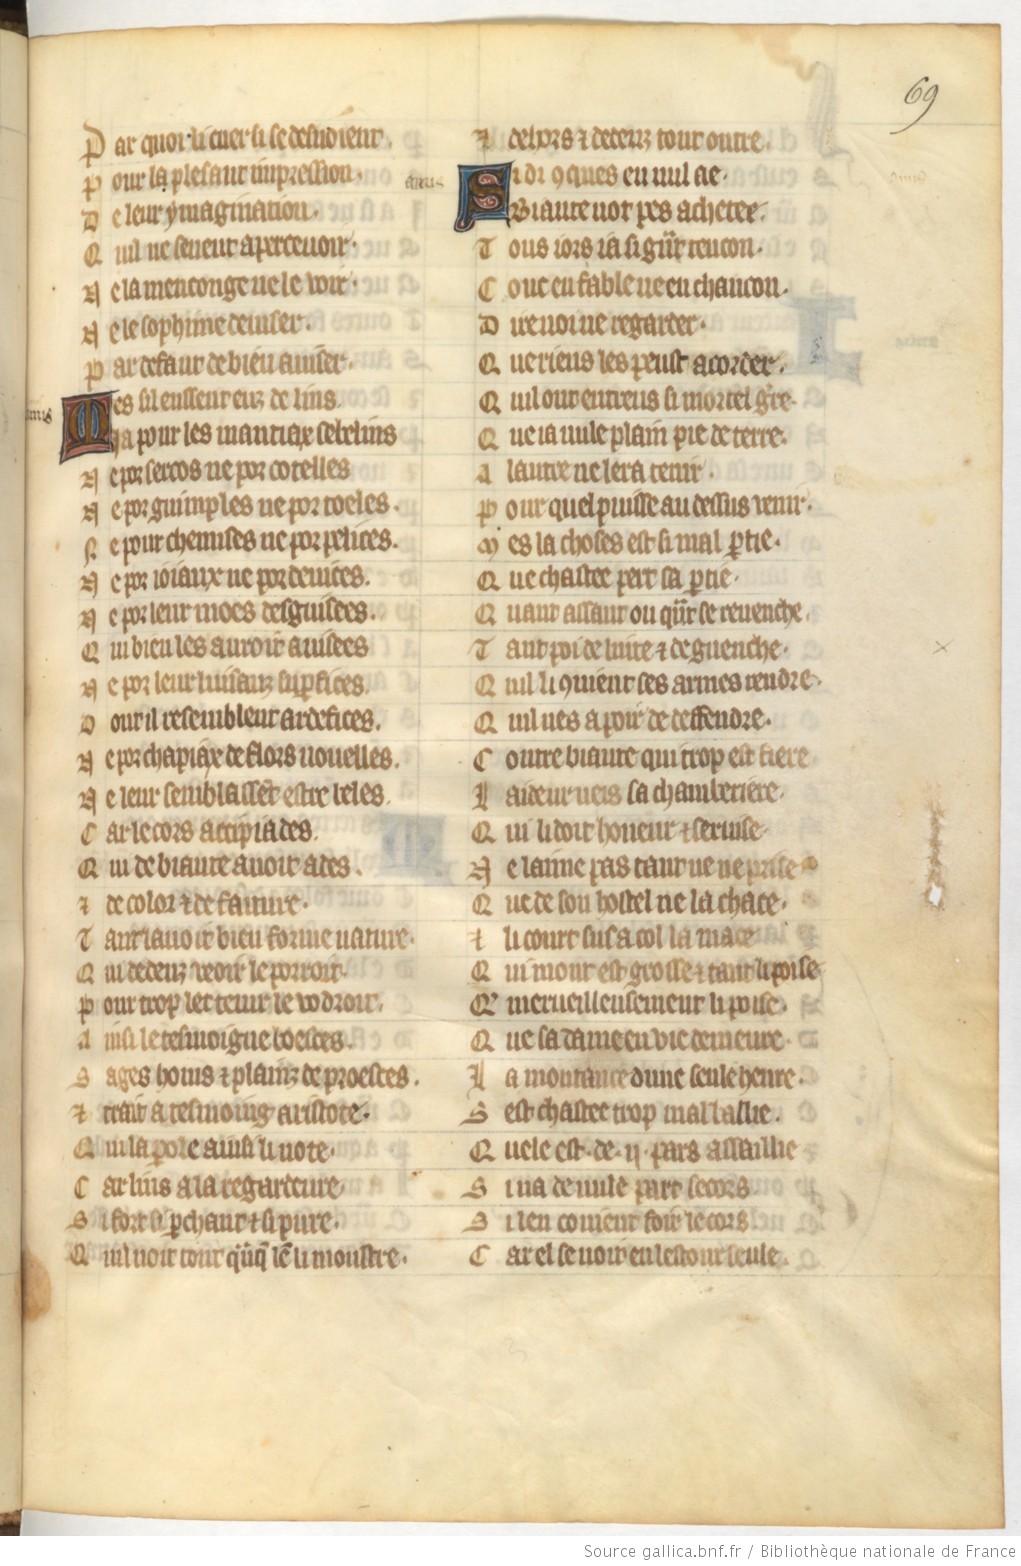 69
Par quoi li cuer si se desuoient
Pour la plesant impression
De leur ymagination
Quil ne seuent aperceuoir
Ne la menconge ne le voir
Ne le sophime deuiser
Par defaut de bien auiser
Mes sil eussent euz de lins
Ja pour les mantiax sebelins
Ne por sercos ne por cotelles
Ne por guimples ne por toeles
Ne pour chemises ne por pelices
Ne por ioiaux ne por deuices
Ne por leur moes desguisees
Qui bien les auroit auisees
Ne por leur luisanz supfices
Dont il resemblent ardefices
Ne por chapiax de flors nouelles
Ne leur semblassent estre beles
Car le cors accipiades
Qui de biaute auoit ades
⁊ de color ⁊ de faiture
Tant lauoit bien forme nature
Qui dedenz veoir le porroit
Pour trop let tenir le vodroit
Ainsi le tesmoigne boeces
Sages homs ⁊ plains de proesces
⁊ trait a tesmoing aristote
Qui la parole ainsi li note
Car lins a la regardeure
Si fort si perchant ⁊ si pure
Quil voit tout quanque len li moustre
⁊ dehors ⁊ dedenz tout outre
amis
Si di 9ques en nul ae
Biaute not pes a chetee
Tous iors ia si grant tencon
Conc en fable ne en chancon
Dire noi ne regarder
Que riens les peust acorder
Quil ont entreus si mortel guerre
Que ia nule plain pie de terre
A lautre ne lera tenir
Pour quel puisse au dessus venir
Mes la choses est si mal partie
Que chastee pert sa partie
Quant assaut ou quant se reuenche
Tant poi de luite ⁊ de guenche
Quil li 9uient ses armes rendre
Quil nes a pooir de deffendre
Contre biaute qui trop est fiere
Laideur neis sa chamberiere
Qui li doit honeur ⁊ seruise
Ne laime pas tant ne ne prise
Que de son hostel ne la chace
⁊ li court sus a col la mace
Qui mout est grosse ⁊ tant li poise
Que merueilleusement li poise
Que sa dame en vie demeure
La montance dune seule heure
Sest chastee trop mal baillie
Quele est ·de· ij· pars assaillie
Si na de nule part secors
Si len conuient foir le cors
Car el se voit en lestour seule
Source gallica.bnf.fr / Bibliothèque nationale de France